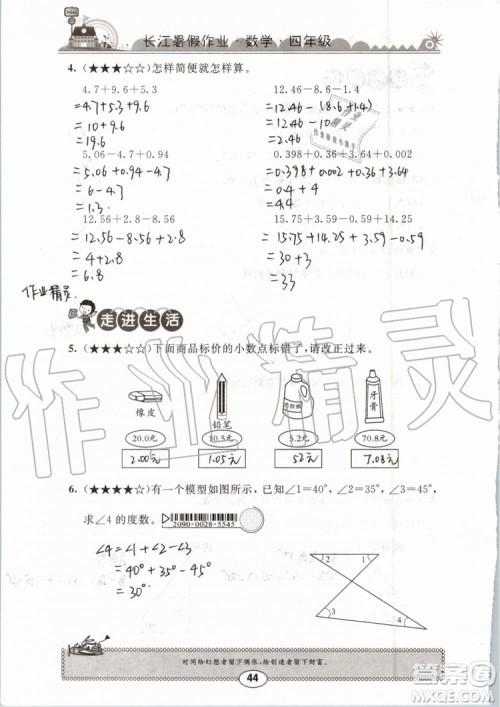 长江暑假作业·数学·四年级
4.(★★★☆☆)怎样简便就怎样算。
4.7+9.6+5.3 12.46-8.6-1.4
=4.7+5.3+9.6 =12.46-(8.6+1.4)
=10+9.6 =12.46-10
=19.6 =2.46
5.06-4.7+0.94 0.398+0.36+3.64+0.002
=5.06+0.94-4.7 =0.398+0.002+0.36+3.64
=6-4.7 =0.4+4
=1.3 =4.4
12.56+2.8-8.56 15.75+3.59-0.59+14.25
=12.56-8.56+2.8 =15.75+14.25+3.59-0.59
=4+2.8 =30+3
=6.8 =33
作业精灵
走进生活
5.(★★★☆☆)下面商品标价的小数点标错了,请改正过来。
橡皮 铅笔 牙膏
20.0元 10.5元 5.2元 70.8元
2.00元 1.05元 52元 7.08元
6.(★★★★☆)有一个模型如图所示,已知∠1=40°,∠2=35°,∠3=45°,
求∠4的度数。
2090-0028-5545
∠4=∠1+∠2-∠3
=40°+35°-45°
=30°
2 1
3 4
时间给幻想者留下惆怅,给创造者留下财富。
44
作业精灵
答案圈
MXQE.COM